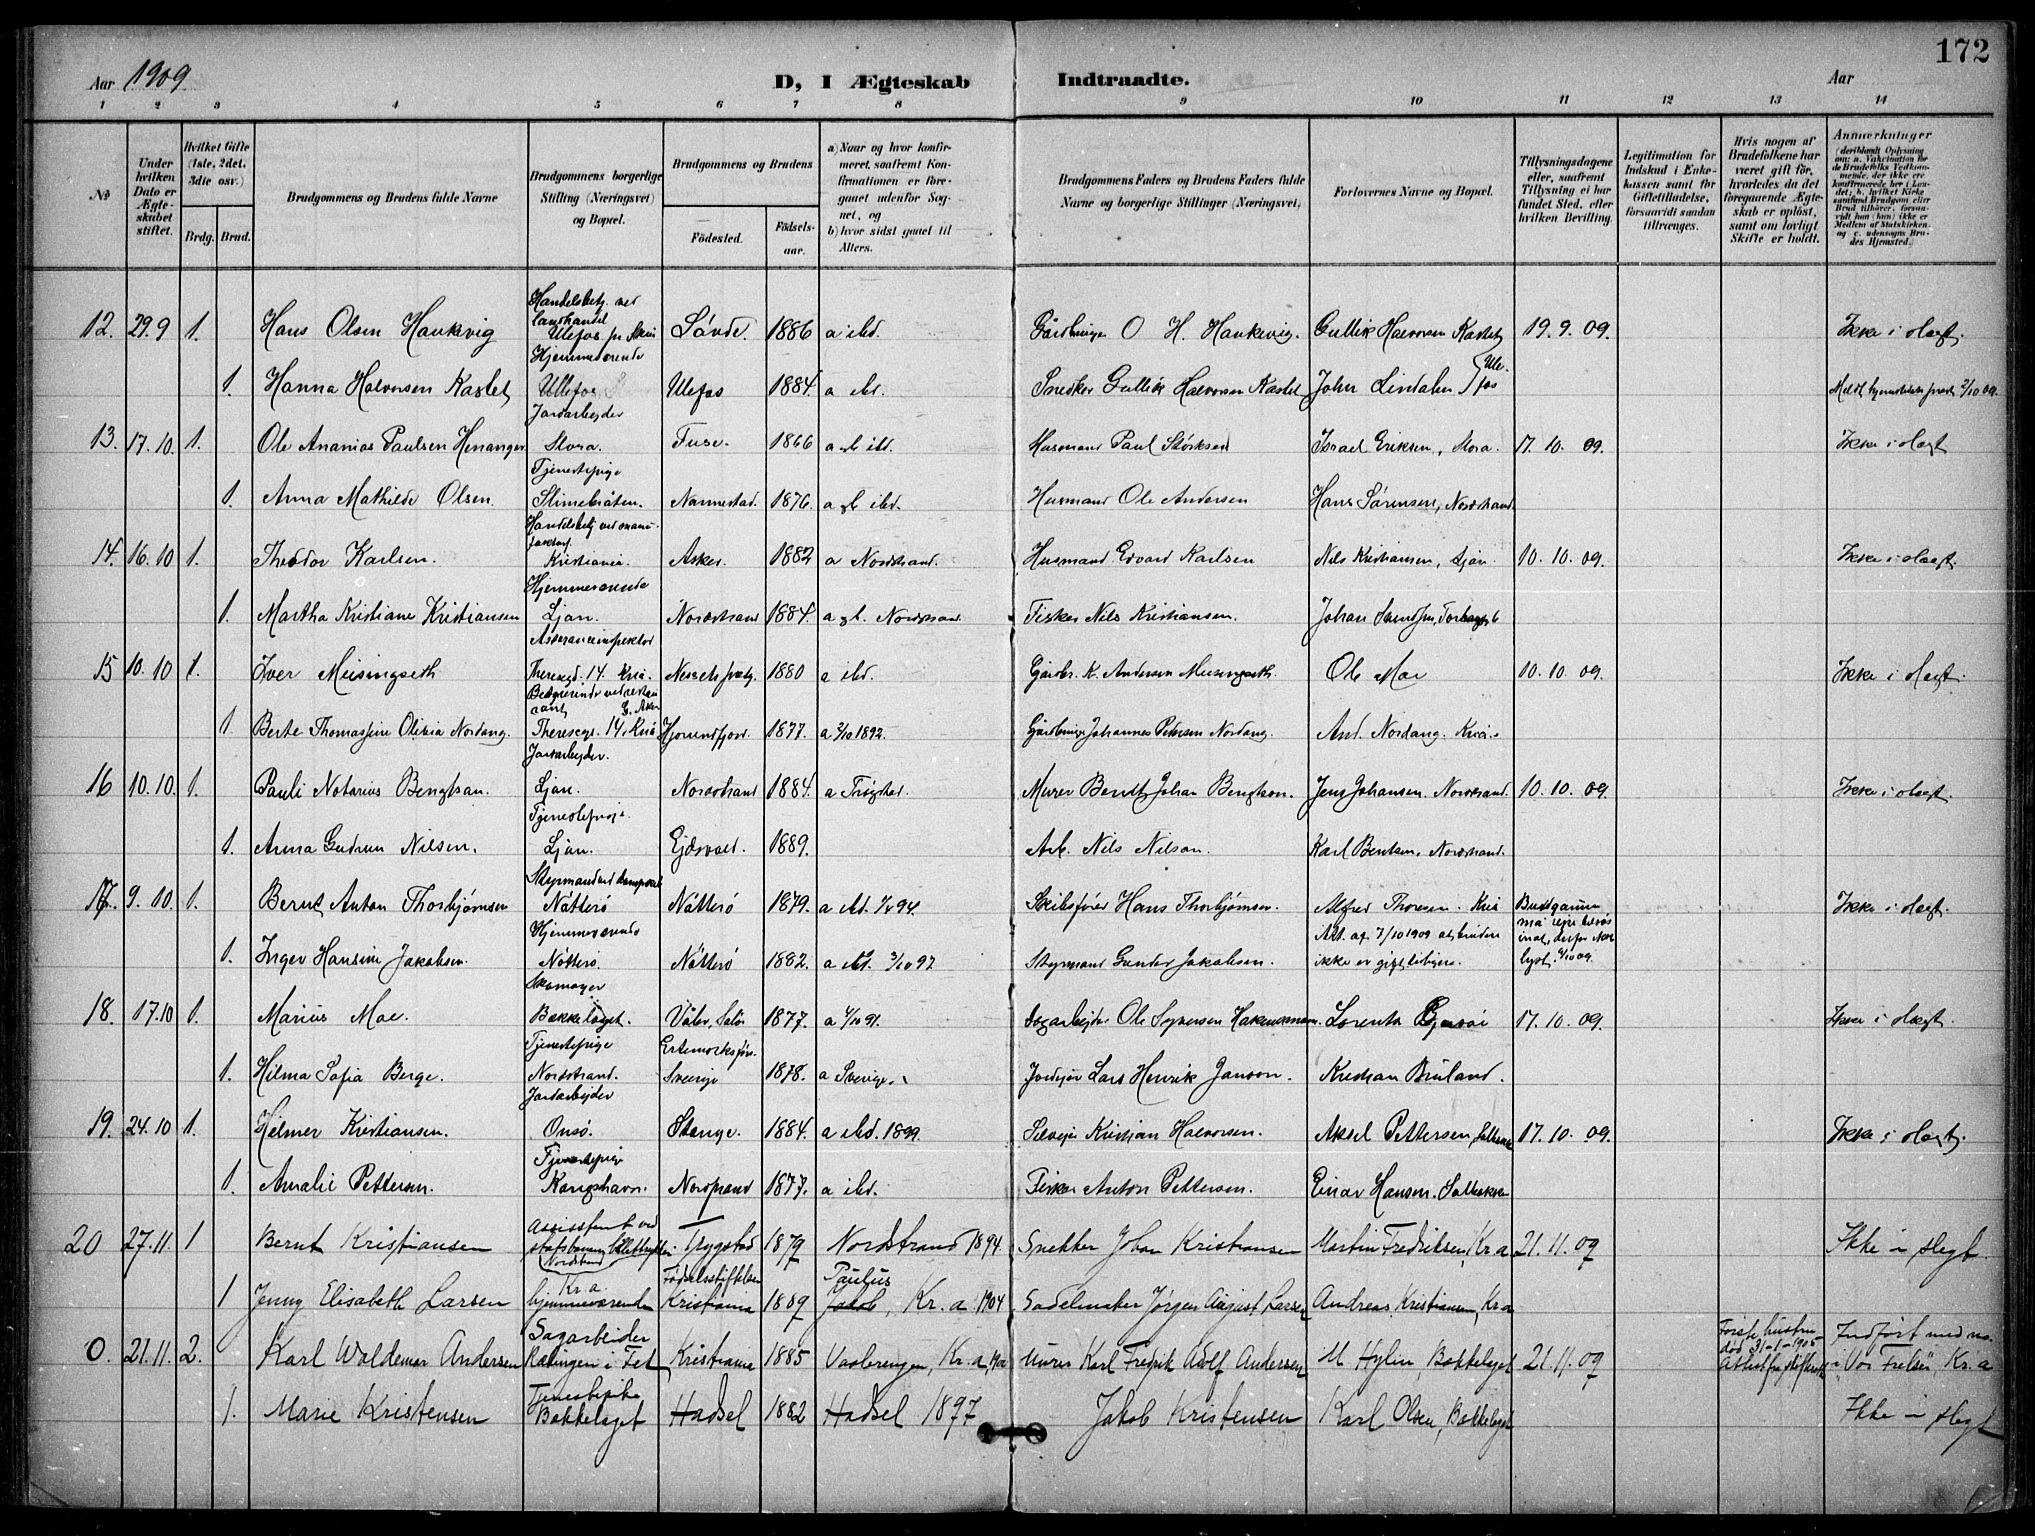 172
Aar 1909
D, I Ægteskab Indtraadte.
Aar
1 2 3 4 5 6 7 8 9 10 11 12 13 14
No.
Under hvilken Dato er Ægteskabet stiftet.
Hvilket Gifte (1ste, 2det, 3die osv.)
Brdg. Brud.
Brudgommens og Brudens fulde Navne
Brudgommens borgerlige Stilling (Næringsvei) og Bopæl.
Brudgommens og Brudens
Fødested. Fødselsaar.
a) Naar og hvor konfirmeret, saafremt Konfirmationen er foregaaet udenfor Sognet, og
b) hvor sidst gaaet til Alters.
Brudgommens Faders og Brudens Faders fulde Navne og borgerlige Stillinger (Næringsvei)
Forlovernes Navne og Bopæl.
Tillysningsdagene eller, saafremt Tillysning ei har fundet Sted, efter hvilken Bevilling.
Legitimation for Indskud i Enkekassen samt for Giftetilladelse, forsaavidt saadan tiltrænges.
Hvis nogen af Brudefolkene har været gift før, hvorledes da det foregaaende Ægteskab er opløst, samt om lovligt Skifte er holdt.
Anmærkninger (deriblandt Oplysning om: a. Vakcination for de Brudefolks Vedkommende, der ikke ere konfirmerede her i Landet; b. hvilket Kirkesamfund Brudgom eller Brud tilhører, forsaavidt han (hun) ikke er Medlem af Statskirken, og c. udensogns Brudes Hjemsted.)
12. 29.9 1. Hans Olsen Haukvig Handelsbetj. ved landhandel Ulefos pr Skien Sövde. 1886 a ibd. Gårdbruger O. H. Haukvig. Gullik Halvorsen Kastet 19.9.09. Ikke i slegt.
1. Hanna Halvorsen Kastet Hjemmeværende Ullefos Ulefos 1884. a ibd. Snedker Gullik Halvorsen Kastet John Lindalen Ulefos Meldt hjemstedets prest 2/10 09.
13. 17.10. 1. Ole Ananias Paulsen Henanger Jordarbejder Stora. Fuse. 1866 a b ibd. Husmand Paul Störksen Israel Eriksen, Stora. 17.10.09. Ikke i slegt
1. Anna Mathilde Olsen. Tjenestepige Slimebråten. Nannestad. 1876. a b ibd. Husmand Ole Andersen Hans Sørensen, Nordstrand
14. 16.10 1. Theodor Karlsen. Handelsbetj ved manufaktur. Kristiania. Asker. 1882 a Nordstrand. Husmand Edvard Karlsen Nils Kristiansen, Ljan. 10.10.09. Ikke i slegt.
1. Martha Kristiane Kristiansen Hjemmeværende Ljan. Nordstrand 1884. a b. Nordstrand Fisker Nils Kristiansen. Johan Svendsen,
15 10.10 1. Iver Meisingseth Assuranceinspektör Theresegd. 14. Kria. Nessets prstg. 1880 a ibd. Gårdbr. K. Andersen Meisingseth. Ole Moe 10.10.09. Ikke i slegt.
1 Berte Thomassine Olivia Nordang. Theresegt. 14. Kria Hjørundfjord 1877. a 2/10 1892. Gårdbruger Johannes Petersen Nordang. And. Nordang. Kria.
16 10.10. 1. Pauli Notarius Bengtsan. Jordarbejder. Ljan. Nordstrand 1884. a Trögstad. Murer Berndt Johan Bengtson. Jens Johansen. Nordstrand. 10.10.09. Ikke i slegt.
1. Anna Gudrun Nilsen. Tjenestepige. Ljan. Ejdsvold. 1889. Arb. Nils Nilsen. Karl Bentsen, Nordstrand.
17. 9.10. 1. Bernt Anton Thorbjörnsen Nötterö Nötterö 1879. a ibd. 94. Skibsförer Hans Thorbjörnsen. Alfred Thoresen. Kria Ikke i slegt.
1. Inger Hansine Jakobsen. Hjemmeværende Nötterö. Nötterö 1882. a ibd. 3/10 97 Styrmand Gunder Jakobsen. Att. af 7/10 1909 at bruden ikke er gift tidligere.
18. 17.10 1. Marius Moe. Skomager Bækkelaget. Våler, Solör 1877. a 4/10 91. Dagarbejder Ole Syversen 17.10.09. Ikke i slegt.
1. Hilma Sofia Berge. Tjenestepige Nordstrand. Ertemarksförs. Sverige 1878. a Sverige. Lars Henrik Janson. Kristian Bruland.
19. 24.10 1. Helmer Kristiansen. Jordarbejder Onsö. Stange. 1884. a ibd. 1899. Selvejer Kristian Halvorsen. Aksel Pettersen, 17.10.09. Ikke i slegt.
1. Amalie Pettersen. Tjenestepige Kongshavn. Nordstrand 1877. a ibd. Fisker Anton Pettersen. Einar Hansen.
20 27.11. 1 Bernt Kristiansen Assisstent ved statsbanen Nordstrand Trygstad 1879 Nordstrand 1894 Snekker Johan Kristiansen Martin Fredriksen, Kr.a 21.11.09 Ikke i slegt.
1 Jenny Elisabeth Larsen Kr.a hjemmeværende Fødselsstiftelsen Kristiania 1889 Paulus Jakob, Kr.a 1904 Sadelmaker Jørgen August Larsen Andreas Kristiansen, Kr.a
0. 21.11. 2. Karl Waldemar Andersen Sagarbeider Rælingen i Fet Kristiania 1885 Vaalerengen, Kr.a, Murer Karl Fredrik Adolf Andersen M Hylin, Bækkelaget 21.11.09 Første hustru død 31-1-1905 Indført med no. i Vor Frelser, Kr.a
1. Marie Kristensen Tjenestepike Bækkelaget Hadsel 1882 Hadsel 1897 Jakob Kristensen Karl Olsen, Bækkelaget Ikke i slegt